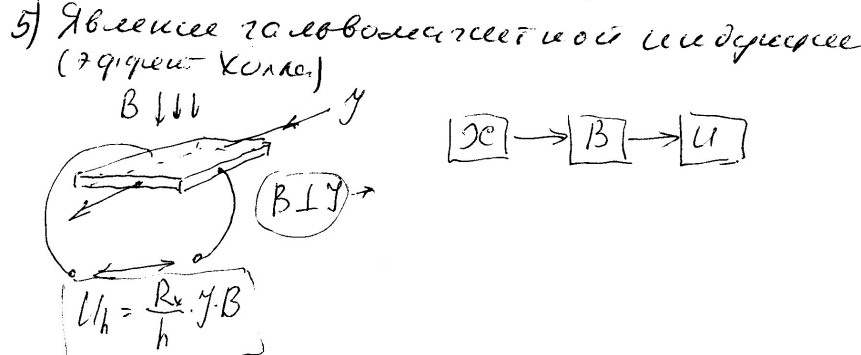 5) Явление гальвомагнитной индукции
(эффект Холла)
B ↓↓↓ J
x → B → U
B⊥J →
U_h = R_x/h · J · B